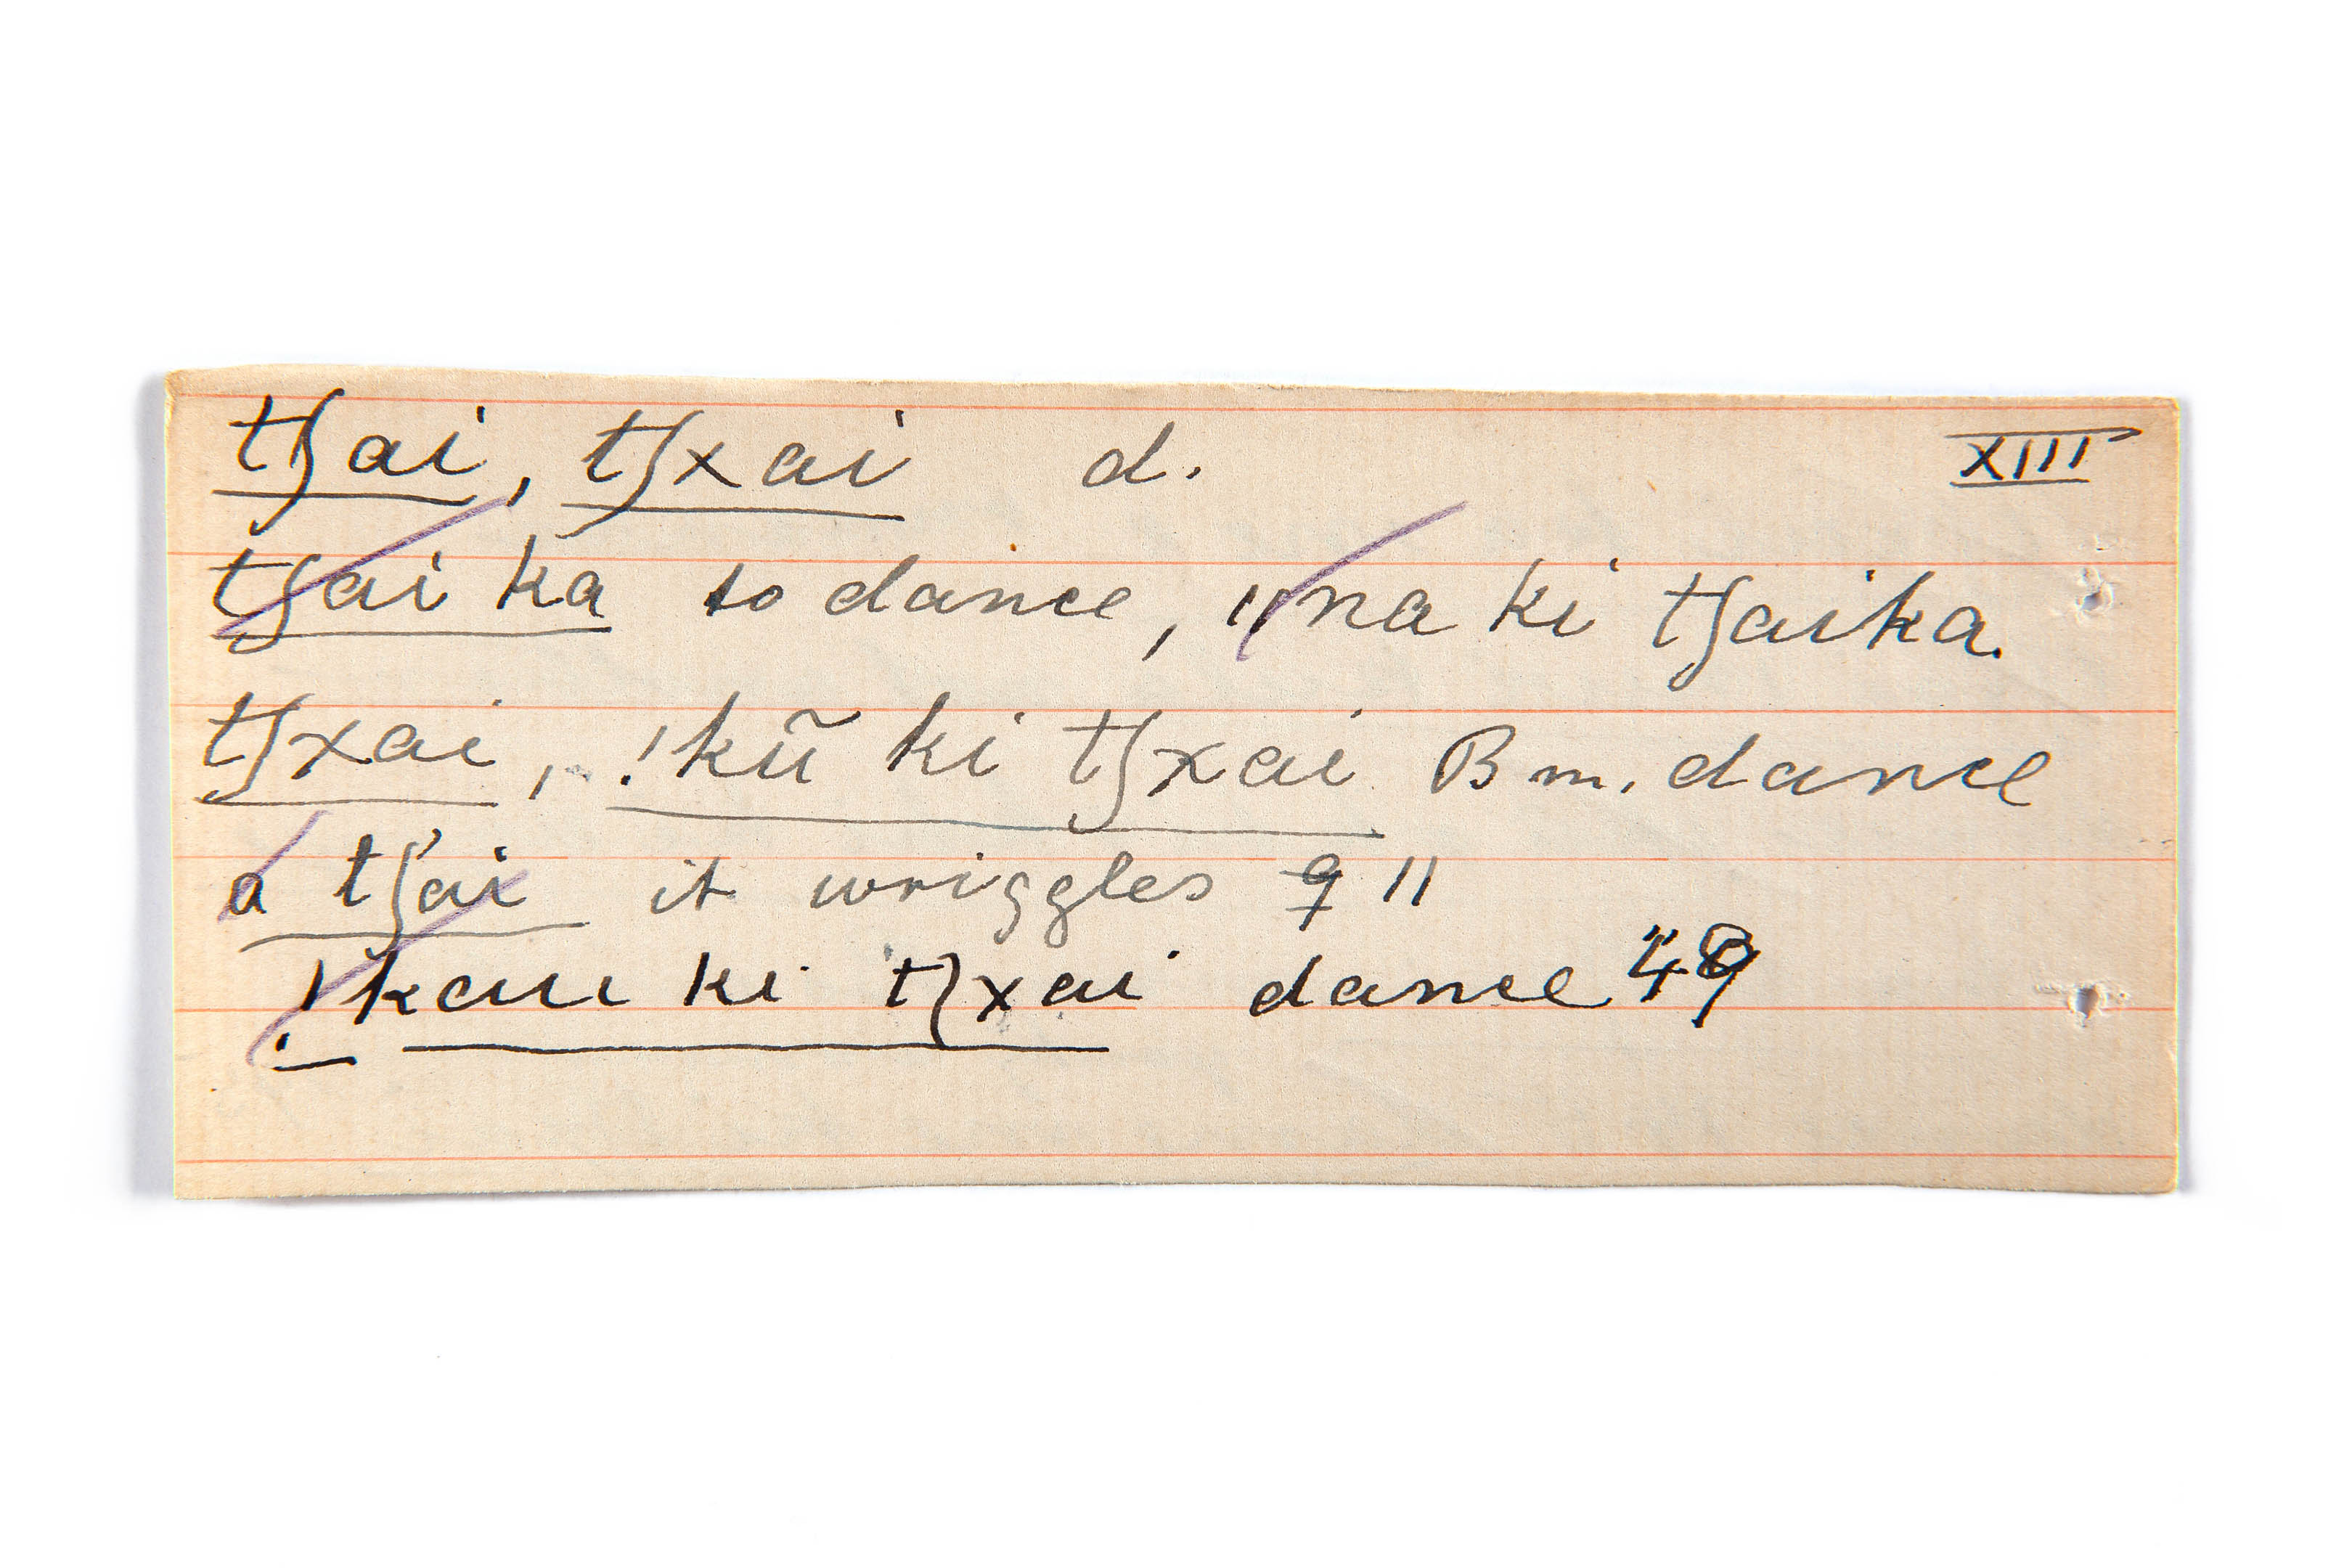 tʃai, tʃxai d. XIII
tʃai ka to dance, ǁna ki tʃaika.
tʃxai, !kũ ki tʃxai Bm. dance
a tʃ'ai it wriggles 9 11
!kau ki tʃxai dance 49